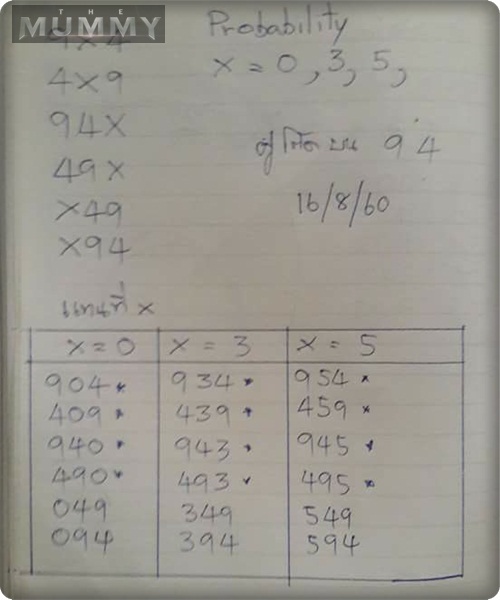 THE
MUMMY
9X4
4X9
94X
49X
X49
X94
Probability
x = 0, 3, 5,
บน 94
16/8/60
แทนที่ x
x = 0 x = 3 x = 5
904* 934* 954*
409* 439* 459*
940* 943* 945*
490* 493* 495*
049 349 549
094 394 594